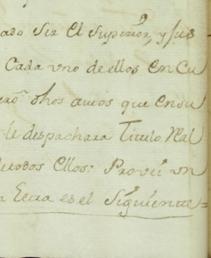 ado Sir El Superior, y sus
Cada vno de ellos en Cu
dhos autos que en su
le despachara Titulo Rl
de todos Ellos: Provei vn
es el Siguiente =